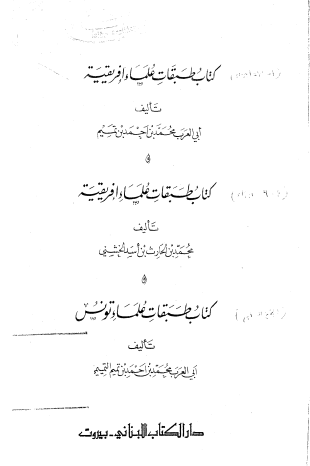 كتاب طبقات علماء إفريقية
تأليف
أبي العرب محمد بن أحمد بن تميم
و
كتاب طبقات علماء إفريقية
تأليف
محمد بن الحارث بن أسد الخشني
و
كتاب طبقات علماء تونس
تأليف
أبي العرب محمد بن أحمد بن تميم التميمي
دار الكتاب اللبناني - بيروت